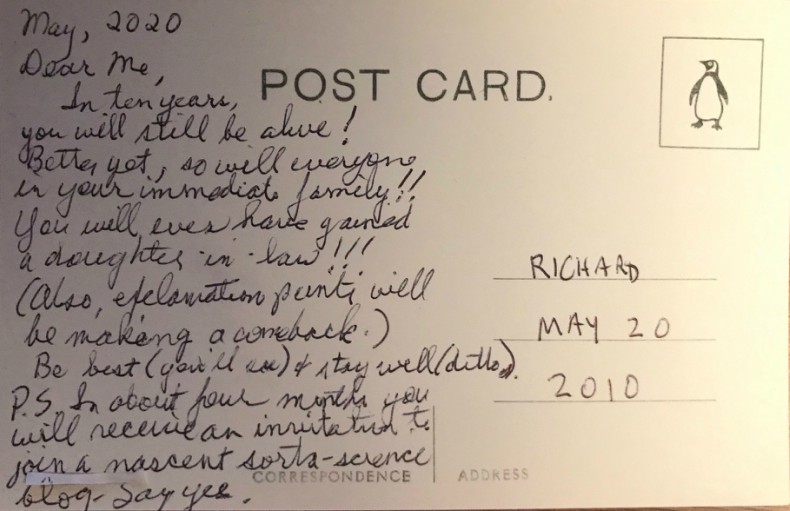 May, 2020
Dear Me,
In ten years,
you will still be alive!
Better yet, so will everyone
in your immediate family!!
You will even have gained
a daughter-in-law!!!
(Also, exclamation points will
be making a comeback.)
Be best (you'll see) & stay well (ditto).
P.S. In about four months you
will receive an invitation to
join a nascent sorta-science
blog - Say yes.
POST CARD.
RICHARD
MAY 20
2010
CORRESPONDENCE
ADDRESS